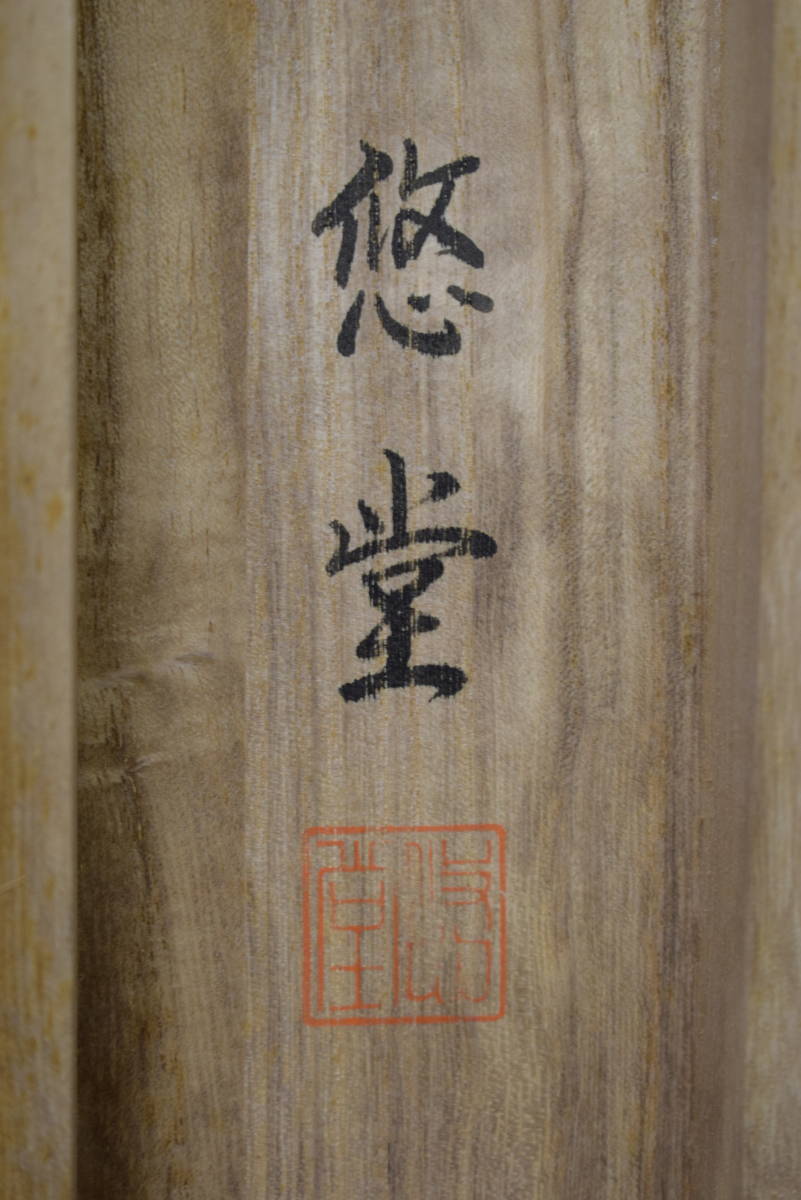 悠堂
悠堂